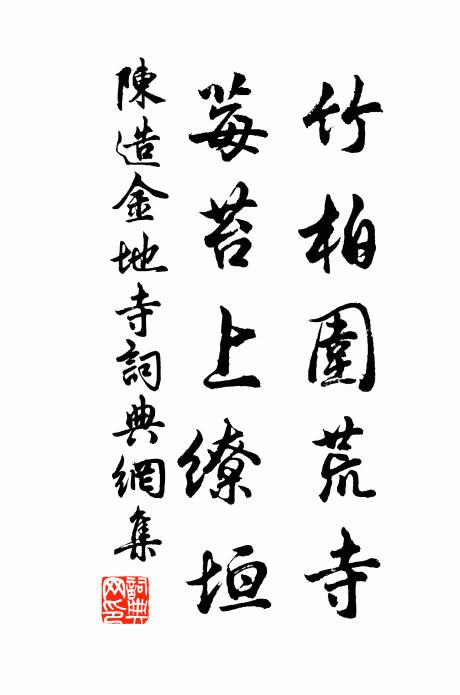 竹柏圍荒寺
莓苔上繚垣
陳造金地寺詞典網集
詞典網印